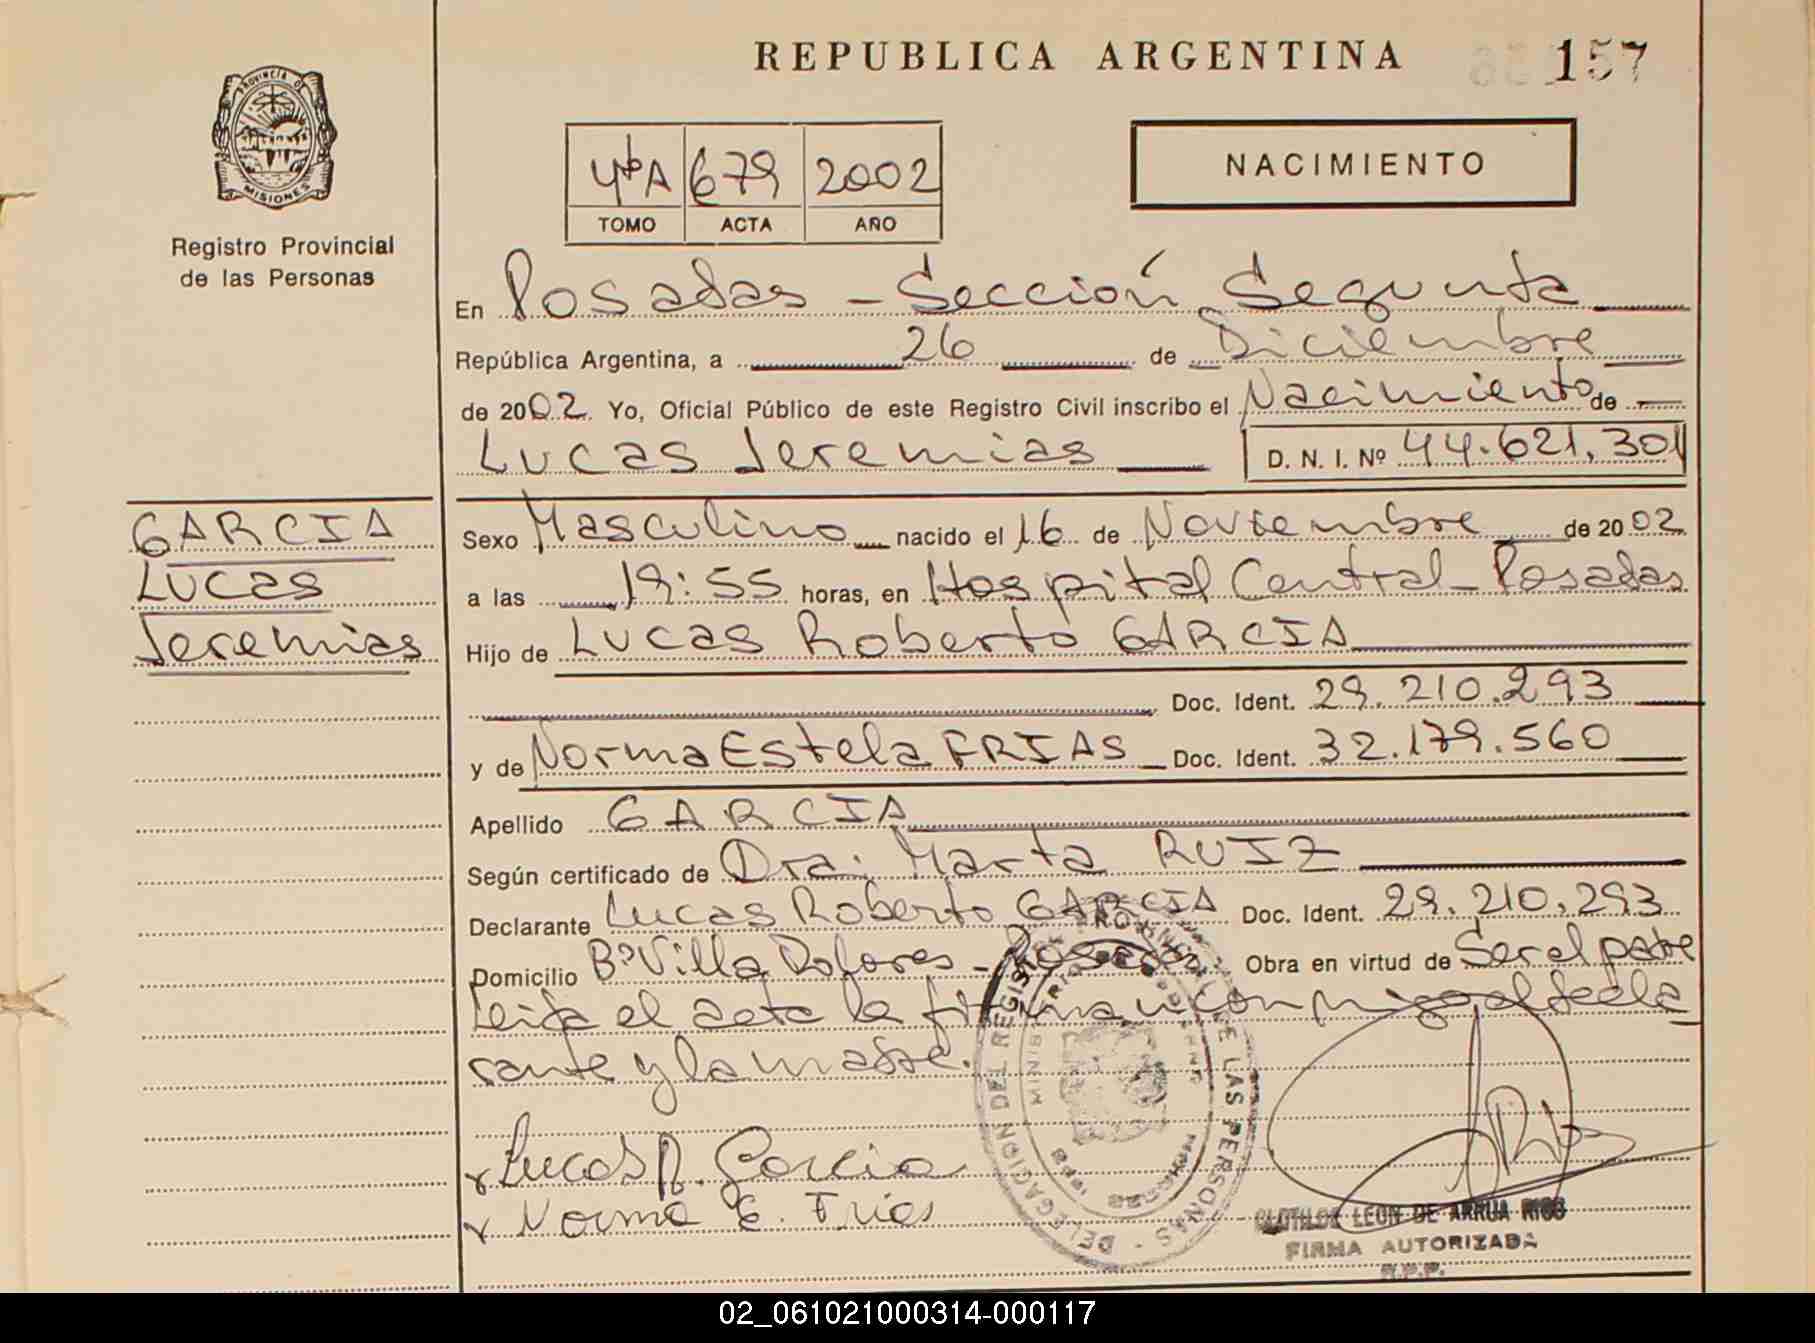 REPUBLICA ARGENTINA
157
PROVINCIA DE
MISIONES
Registro Provincial
de las Personas
4to A 679 2002
TOMO ACTA AÑO
NACIMIENTO
En Posadas - Sección Segunda
República Argentina, a 26 de Diciembre
de 2002 Yo, Oficial Público de este Registro Civil inscribo el Nacimiento de
Lucas Jeremias D. N. I. Nº 44.621.301
GARCIA
Lucas
Jeremias
Sexo Masculino nacido el 16 de Noviembre de 2002
a las 19:55 horas, en Hospital Central - Posadas
Hijo de Lucas Roberto GARCIA
Doc. Ident. 29.210.293
y de Norma Estela FRIAS Doc. Ident. 32.179.560
Apellido GARCIA
Según certificado de Dra. Marta RUIZ
Declarante Lucas Roberto GARCIA Doc. Ident. 29.210.293
Domicilio Bº Villa Dolores - Posadas Obra en virtud de Ser el padre
Leida el acta la firman conmigo el decla
rante y la madre.
Lucas R. Garcia
Norma E. Frias
DELEGACION DEL REGISTRO PROVINCIAL DE LAS PERSONAS
CLOTILDE LEON DE ARRUA RIOS
FIRMA AUTORIZADA
R.P.P.
02_061021000314-000117